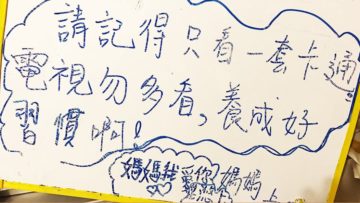 請記得只看一套卡通,
電視勿多看,養成好
習慣啊!
媽媽我愛您
媽媽上